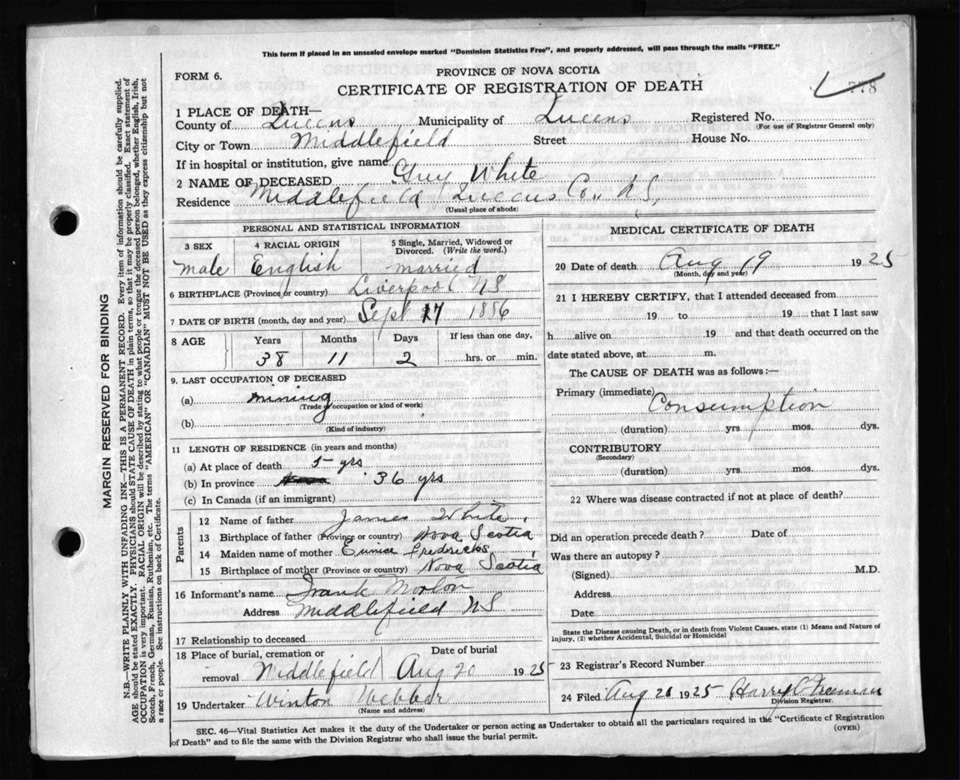 This form if placed in an unsealed envelope marked "Dominion Statistics Free", and properly addressed, will pass through the mails "FREE."
FORM 6.
PROVINCE OF NOVA SCOTIA
CERTIFICATE OF REGISTRATION OF DEATH
778
1 PLACE OF DEATH—
County of Queens Municipality of Queens Registered No.
(For use of Registrar General only)
City or Town Middlefield Street House No.
If in hospital or institution, give name
2 NAME OF DECEASED Guy White
Residence Middlefield Queens Co. N.S.
(Usual place of abode)
PERSONAL AND STATISTICAL INFORMATION
3 SEX 4 RACIAL ORIGIN 5 Single, Married, Widowed or Divorced. (Write the word.)
Male English Married
6 BIRTHPLACE (Province or country) Liverpool NS
7 DATE OF BIRTH (month, day and year) Sept 17 1886
8 AGE Years Months Days If less than one day,
38 11 2 hrs. or min.
9. LAST OCCUPATION OF DECEASED
(a) mining
(Trade or occupation or kind of work)
(b)
(Kind of industry)
11 LENGTH OF RESIDENCE (in years and months)
(a) At place of death 5 yrs
(b) In province 36 yrs
(c) In Canada (if an immigrant)
Parents
12 Name of father James White
13 Birthplace of father (Province or country) Nova Scotia
14 Maiden name of mother Fredericks
15 Birthplace of mother (Province or country) Nova Scotia
16 Informant's name Frank Morton
Address Middlefield NS
17 Relationship to deceased
18 Place of burial, cremation or removal Date of burial
Middlefield Aug 20 1925
19 Undertaker Winton Webber
(Name and address)
MEDICAL CERTIFICATE OF DEATH
20 Date of death Aug 19 1925
(Month, day and year)
21 I HEREBY CERTIFY, that I attended deceased from
19 to 19 that I last saw
h alive on 19 and that death occurred on the
date stated above, at m.
The CAUSE OF DEATH was as follows:—
Primary (immediate) Consumption
(duration) yrs mos. dys.
CONTRIBUTORY
(Secondary)
(duration) yrs. mos. dys.
22 Where was disease contracted if not at place of death?
Did an operation precede death? Date of
Was there an autopsy?
(Signed) M.D.
Address
Date
State the Disease causing Death, or in death from Violent Causes, state (1) Means and Nature of
Injury, (2) whether Accidental, Suicidal or Homicidal
23 Registrar's Record Number
24 Filed Aug 1925 Harry Freeman
Division Registrar.
SEC. 46—Vital Statistics Act makes it the duty of the Undertaker or person acting as Undertaker to obtain all the particulars required in the "Certificate of Registration
of Death" and to file the same with the Division Registrar who shall issue the burial permit.
(OVER)
MARGIN RESERVED FOR BINDING
N.B.—WRITE PLAINLY WITH UNFADING INK—THIS IS A PERMANENT RECORD. Every item of information should be carefully supplied.
AGE should be stated EXACTLY. PHYSICIANS should STATE CAUSE OF DEATH in plain terms, so that it may be properly classified. Exact statement of
OCCUPATION is very important. RACIAL ORIGIN will be described by stating to what people or tongue the deceased person belonged, whether English, Irish,
Scotch, French, German, Russian, Ruthenian, etc. The terms "AMERICAN" OR "CANADIAN" MUST NOT BE USED as they express citizenship but not
a race or people. See instructions on back of Certificate.